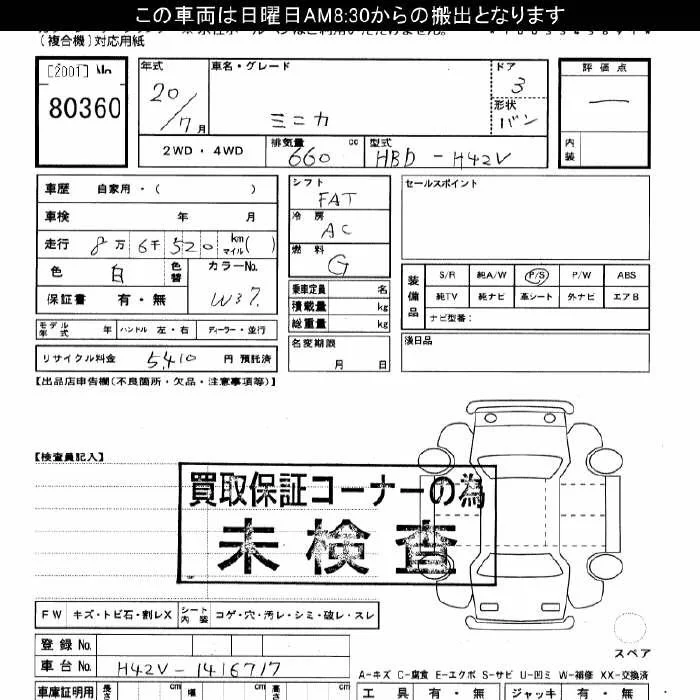 この車両は日曜日AM8:30からの搬出となります
(複合機)対応用紙
[2001] No 80360
年式 20/7月
車名・グレード ミニカ
ドア 3
形状 バン
評価点 —
内装
2WD・4WD
排気量 660 cc
型式 HBD-H42V
車歴 自家用・( )
車検 年 月
走行 8万6千520 km マイル( )
色 白 色替 カラーNo. W37.
保証書 有・無
モデル年式 年 ハンドル 左・右 ディーラー・並行
リサイクル料金 5,410 円 預託済
シフト FAT
冷房 AC
燃料 G
乗車定員 名
積載量 kg
総重量 kg
名変期限 月 日
セールスポイント
装備品 S/R 純A/W P/S P/W ABS
純TV 純ナビ 革シート 外ナビ エアB
ナビ型番:
後日品
【出品店申告欄(不良箇所・欠品・注意事項等)】
【検査員記入】
買取保証コーナーの為
未検査
FW キズ・トビ石・割レX シート内装 コゲ・穴・汚レ・シミ・破レ・スレ
スペア
登録No.
車台No. H42V-1416717
A-キズ C-腐食 E-エクボ S-サビ U-凹ミ W-補修 XX-交換済
車庫証明用 長さ cm 幅 cm 高さ cm
工具 有・無 ジャッキ 有・無